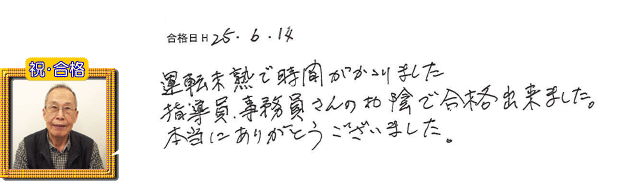 合格日 H 25.6.14
祝・合格
運転未熟で時間がかかりました
指導員、事務員さんのお陰で合格出来ました。
本当にありがとうございました。